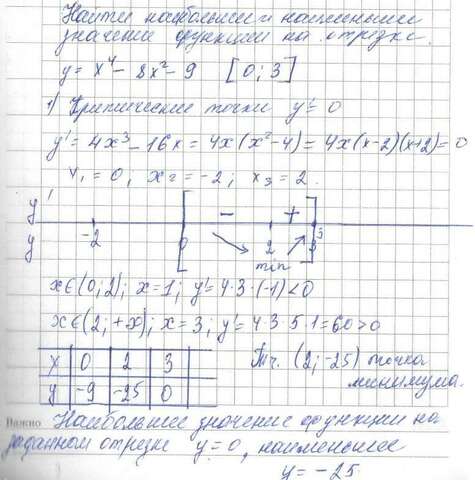 Найти наибольшее и наименьшее
значение функции на отрезке.
y = x⁴ - 8x² - 9 [0; 3]
1) Критические точки y' = 0
y' = 4x³ - 16x = 4x(x² - 4) = 4x(x-2)(x+2) = 0
x₁ = 0, x₂ = -2; x₃ = 2.
y' - +
y -2 0 2 3 3
min
x∈(0; 2); x = 1; y' = 4·3·(-1) < 0
x∈(2; +∞); x = 3; y' = 4·3·5·1 = 60 > 0
x 0 2 3 Тч. (2; -25) точка
y -9 -25 0 минимума.
Важно Наибольшее значение функции на
заданном отрезке y = 0, наименьшее
y = -25